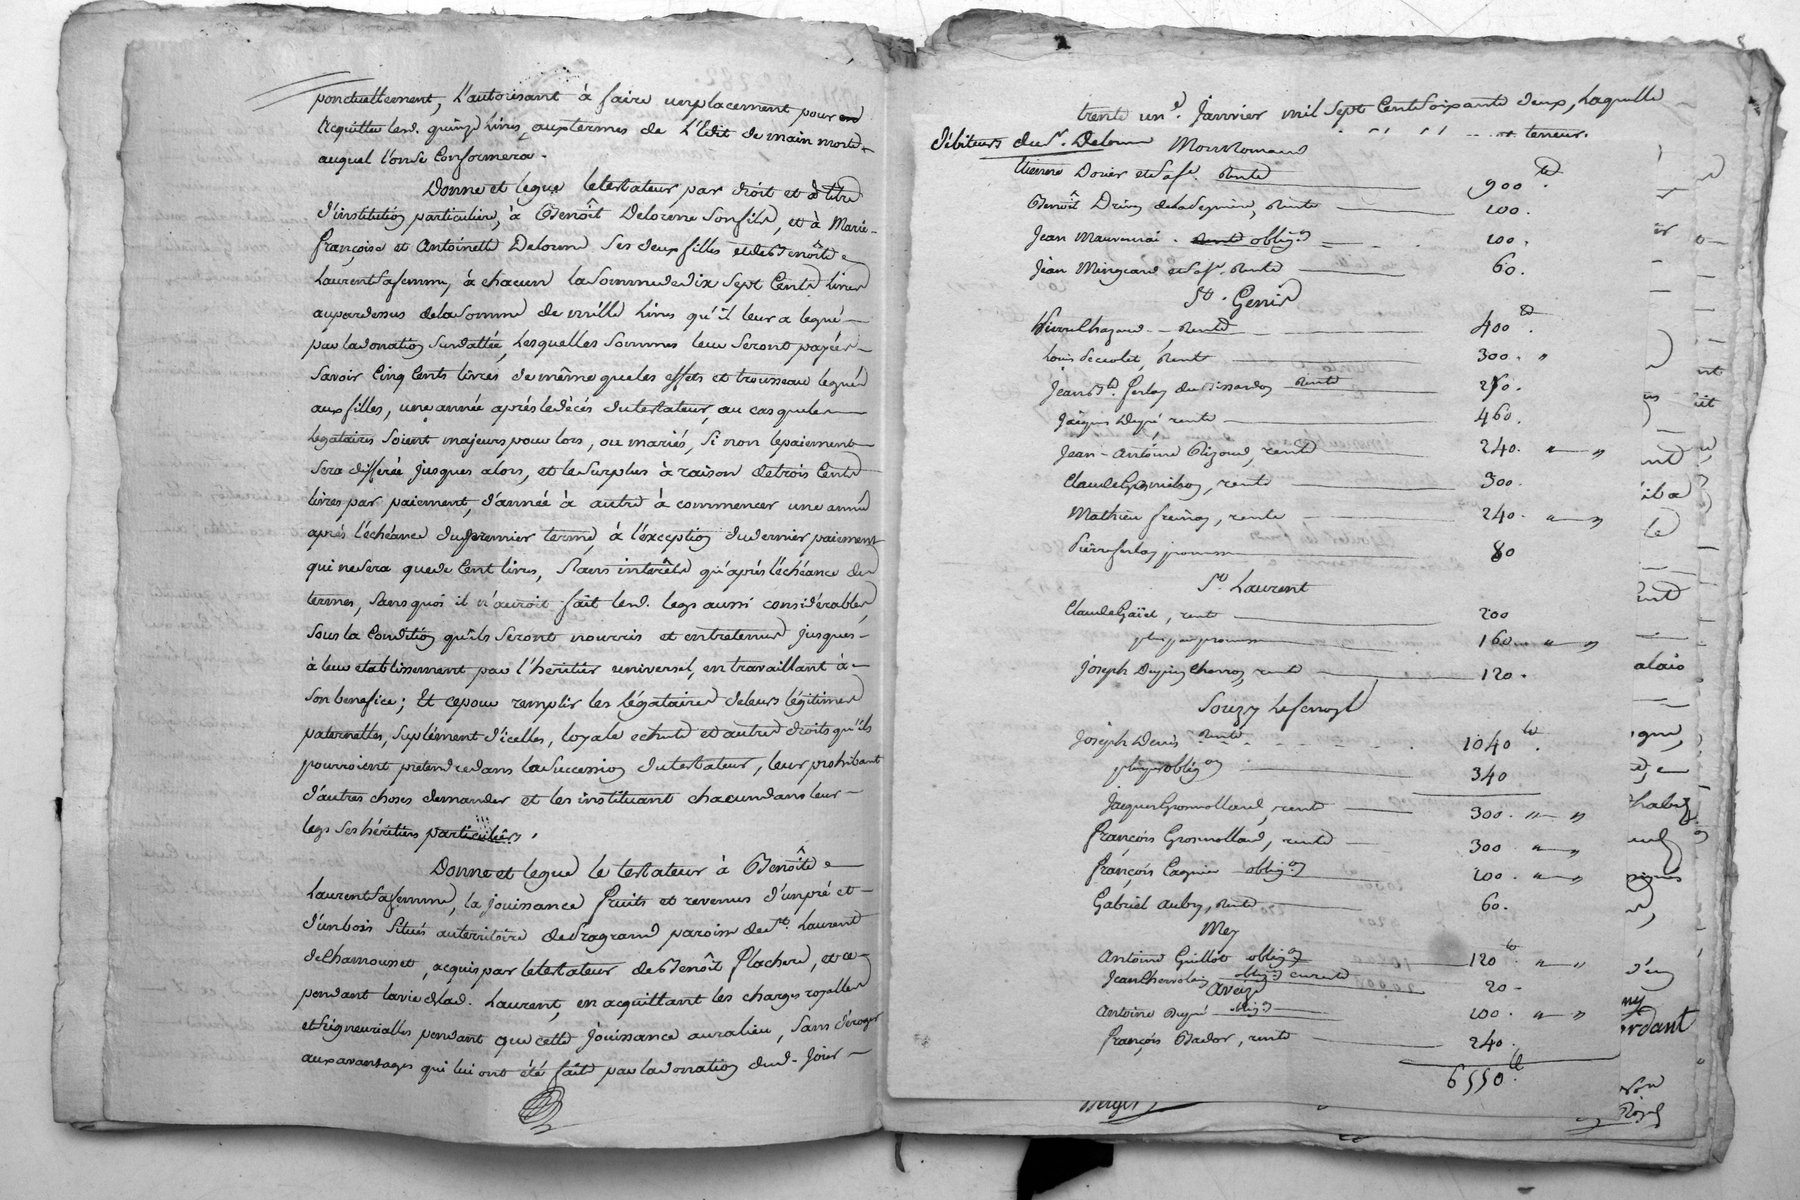 ponctuellement, L'autorisant à faire remplacement pour
acquitter lesd. quinze Livres, aux termes de L'Edit de main morte
auquel l'on se Conformera.
Donne et legue le testateur par droit et titre
d'institution particuliere, à Benoît Delorme son fils, et à Marie-
françoise et Antoinette Delorme Ses deux filles et de Benoîte
Laurent Sa femme, à chacun la Somme de dix Sept Cents Livres
aupardessus de la Somme de mille Livres qu'il leur a legué
par la donation Susdattée, Lesquelles Sommes leur Seront payées
Savoir Cinq Cents livres de même que les effets et trousseau legué
aux filles, une année après le décés du testateur, au cas que les
Légataires Soient majeurs pour lors, ou mariés, Si non le paiement
Sera différé jusques alors, et le Surplus à raison de trois Cents
livres par paiement, d'année à autre à commencer une année
après l'échéance du premier terme, à l'exception du dernier paiement
qui ne Sera que de Cent livres, Sans interêts qu'après l'échéance des
termes, Sans quoi il n'auroit fait lesd. legs aussi considérables,
Sous la Condition qu'ils Seront nourris et entretenus jusques
à leur etablissement par l'héritier universel, en travaillant à
Son benefice; Et ce pour remplir les légataires de leurs légitimes
paternelles, Suplément d'icelles, loyale echute et autres droits qu'ils
pourroient pretendre dans la Succession du testateur, leur prohibant
d'autres choses demander et les instituant chacun dans leur
legs Ses héritiers particuliers.
Donne et legue le testateur à Benoîte
Laurent Sa femme, la jouissance fruits et revenus d'un pré et
d'un bois Situés au territoire de Fragrand paroisse de St. Laurent
de Chamousset, acquis par le testateur de Benoît Flachere, et ce
pendant la vie de lad. Laurent, en acquittant les charges royalles
et Seigneurialles pendant que cette jouissance aura lieu, Sans déroger
aux avantages qui lui ont été fait par la donation dud. jour
trente un Janvier mil Sept Cent Soixante deux, Laquelle
teneur.
Débiteurs du Sr. Delorme Montromand
Etienne Dovier et Sa fe. Rente 900
Benoît Drivon rente 100.
Jean Mauvernai . rente oblig. 100.
Jean Mingeard et Sa fe. Rente 60.
St. Genis
Pierre Chazaud rente 400
Louis rente 300. "
Jean Bte. ferlay du rente 250.
Jaques Dupré, rente 460.
Jean-Antoine Rizoud, rente 240. " "
Claude rente 300.
Mathieu rente 240. " "
Pierre ferlay promesse 80
St. Laurent
Claude Gaiet, rente 200
plus par promesse 160 " "
Joseph Dupuy Charron, rente 120.
Souzy
Joseph Denis rente 1040
plus par oblig. 340
Jacques Grosmollard, rente 300. " "
François Grosmollard, rente 300 " "
François Cagnier oblig. 100. " "
Gabriel Aubry, rente 60.
Mey
Antoine Guillot oblig. 120 " "
Jean oblig. 20
Aveize
Antoine Dupré oblig. 100. " "
François Bador, rente 240.
6550